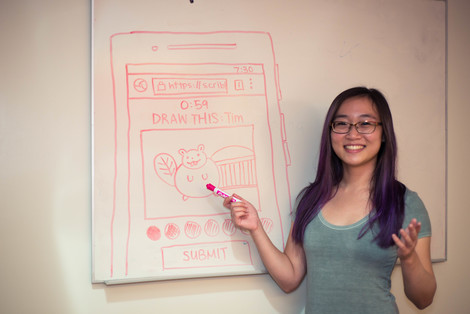 7:30
https://scribb
1
0:59
DRAW THIS: Tim
SUBMIT